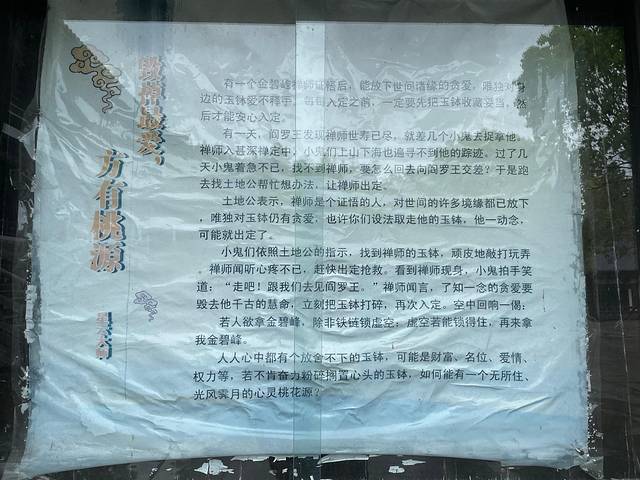 毁掉最爱，
方有桃源
星云大师
有一个金碧峰禅师证悟后，能放下世间诸缘的贪爱，唯独对身
边的玉钵爱不释手，每每入定之前，一定要先把玉钵收藏妥当，然
后才能安心入定。
有一天，阎罗王发现禅师世寿已尽，就差几个小鬼去捉拿他。
禅师入甚深禅定中，小鬼们上山下海也遍寻不到他的踪迹。过了几
天小鬼着急不已，找不到禅师，要怎么回去向阎罗王交差？于是跑
去找土地公帮忙想办法，让禅师出定。
土地公表示，禅师是个证悟的人，对世间的许多境缘都已放下
，唯独对玉钵仍有贪爱，也许你们设法取走他的玉钵，他一动念，
可能就出定了。
小鬼们依照土地公的指示，找到禅师的玉钵，顽皮地敲打玩弄
。禅师闻听心疼不已，赶快出定抢救。看到禅师现身，小鬼拍手笑
道：“走吧！跟我们去见阎罗王。”禅师闻言，了知一念的贪爱要
毁去他千古的慧命，立刻把玉钵打碎，再次入定。空中回响一偈：
若人欲拿金碧峰，除非铁链锁虚空；虚空若能锁得住，再来拿
我金碧峰。
人人心中都有个放舍不下的玉钵，可能是财富、名位、爱情、
权力等，若不肯奋力粉碎搁置心头的玉钵，如何能有一个无所住、
光风霁月的心灵桃花源？